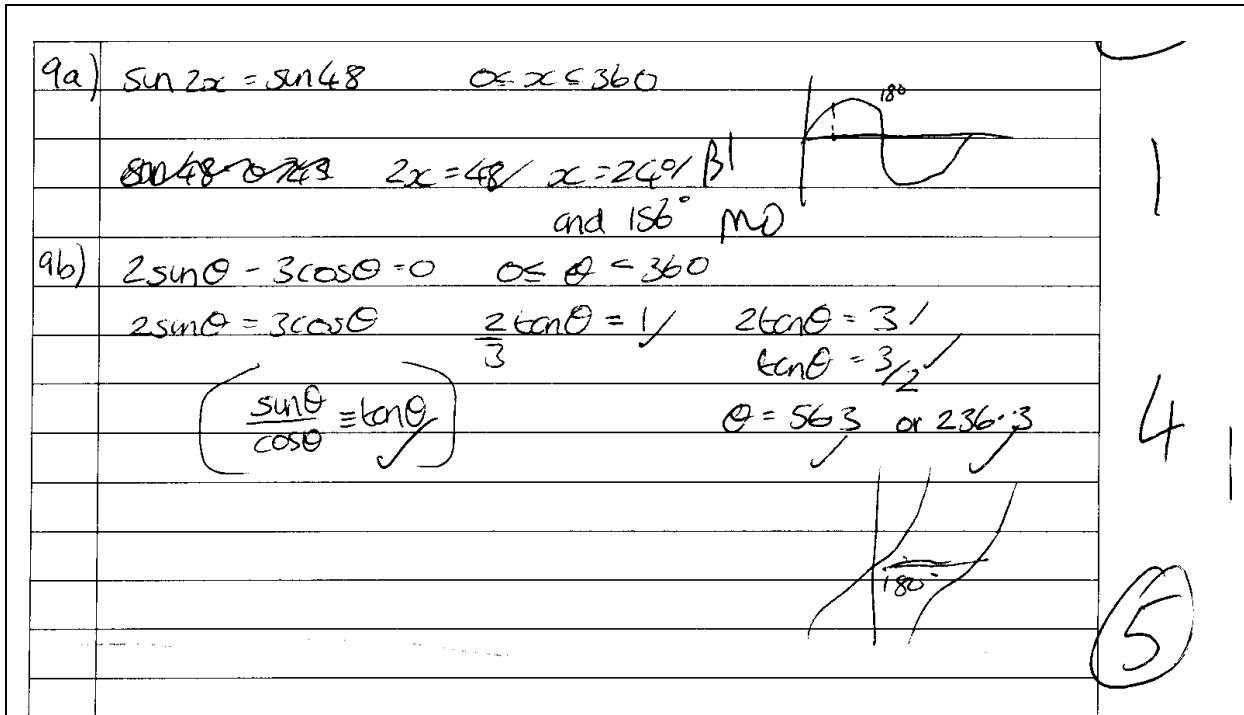 9a) sin 2x = sin48 0≤ x ≤ 360
180
2x = 48 x = 24° B1
1
and 156° M0
9b) 2sinθ - 3cosθ = 0 0≤ θ < 360
2sinθ = 3cosθ 2/3 tanθ = 1 ✓ 2tanθ = 3
tanθ = 3/2 ✓
(sinθ/cosθ ≡ tanθ ✓) θ = 56.3 or 236.3
4
✓ ✓
180°
5